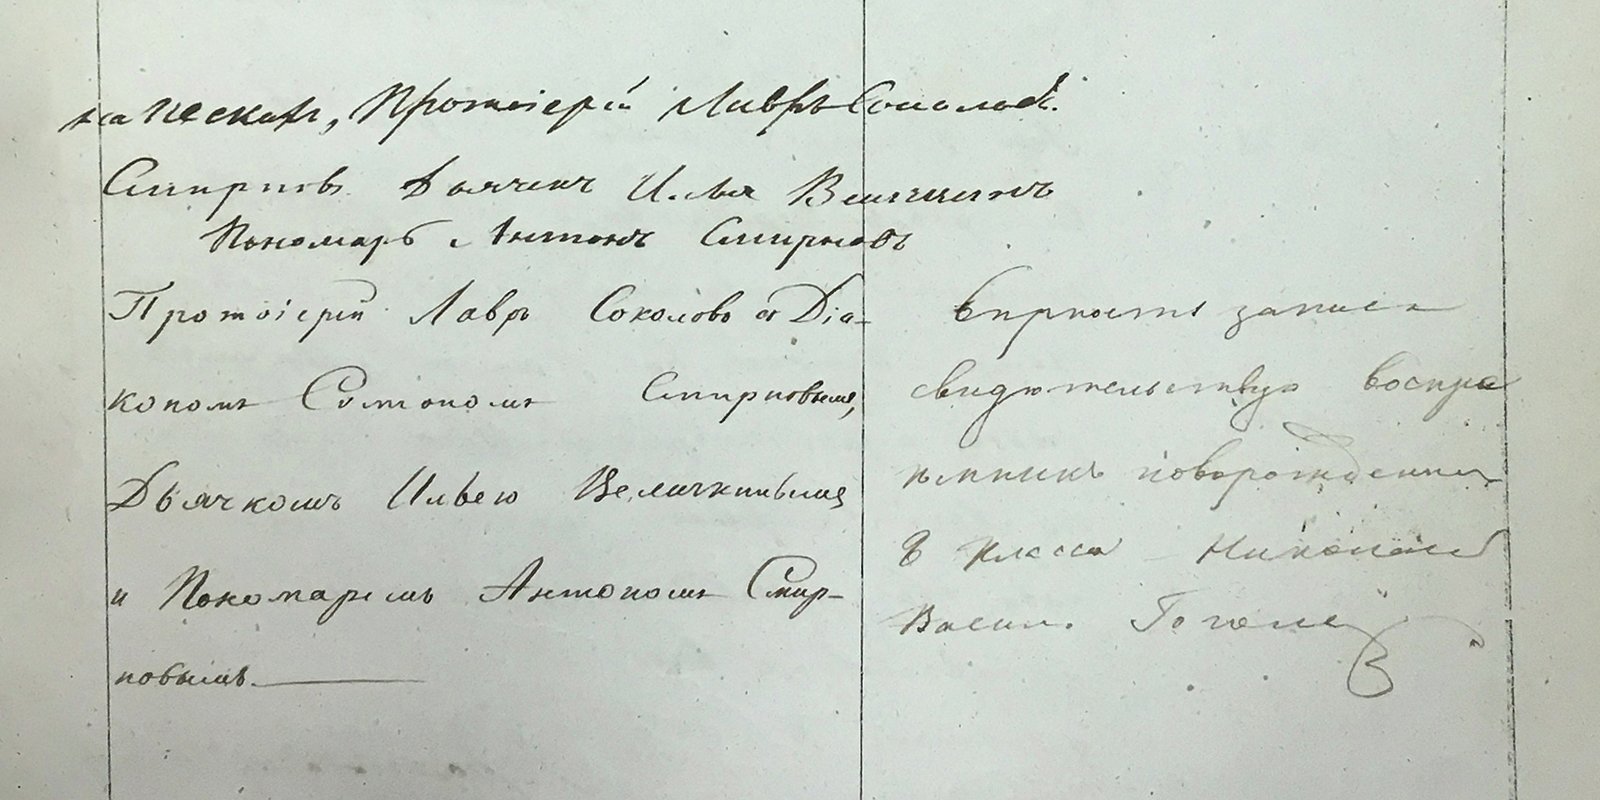 на Пескахъ, Протоіерей Лавръ Соколовъ.
Смирновъ Дьячекъ Илья Величкинъ
Пономарь Антонъ Смирновъ
Протоіерей Лавръ Соколовъ съ Діа-
кономъ Смирновымъ,
Дьячкомъ Ильею Величкинымъ
и Пономаремъ Антономъ Смир-
новымъ.
вѣрность записи
свидѣтельствую воспрі
емникъ новорожденнаго
8 класса Николай
Васил. Гоголь